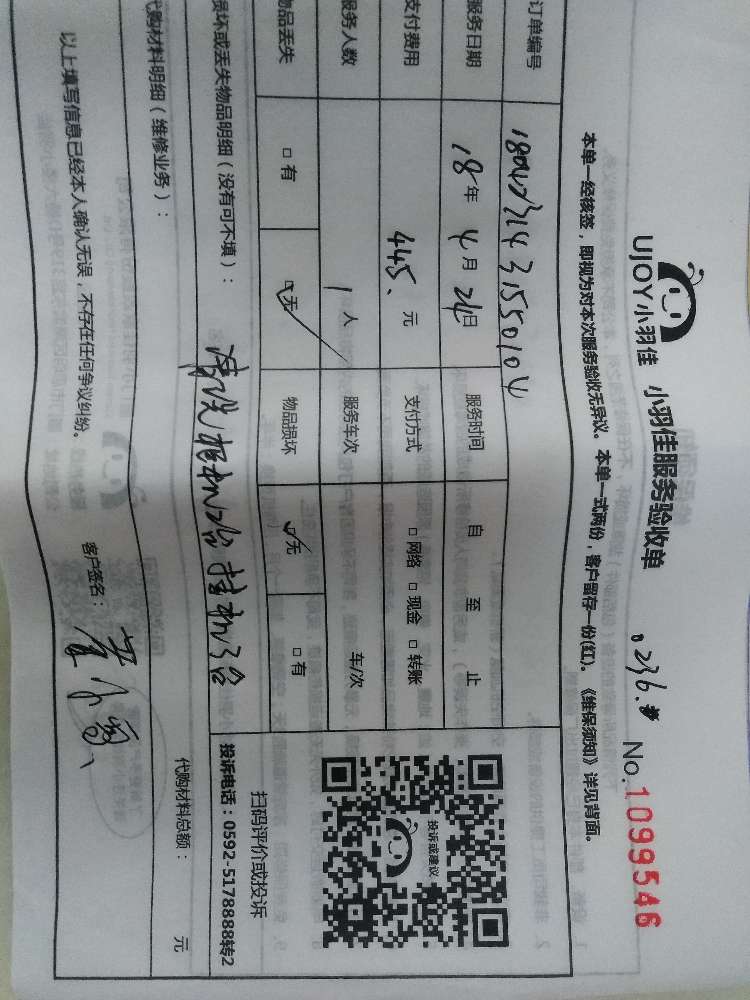 UJOY小羽佳 小羽佳服务验收单 No.1099546
本单一经核签，即视为对本次服务验收无异议。本单一式两份，客户留存一份(红)。《维保须知》详见背面。
订单编号
服务日期 18年4月24日 服务时间 自 至 止
支付费用 445. 元 支付方式 □网络 □现金 □转账
服务人数 1人 服务车次 车/次
物品丢失 □有 □无 物品损坏 □无 □有
损坏或丢失物品明细（没有可不填）：
代购材料明细（维修业务）：
代购材料总额： 元
以上填写信息已经本人确认无误，不存在任何争议纠纷。 客户签名：
投诉或建议
扫码评价或投诉
投诉电话：0592-5178888转2